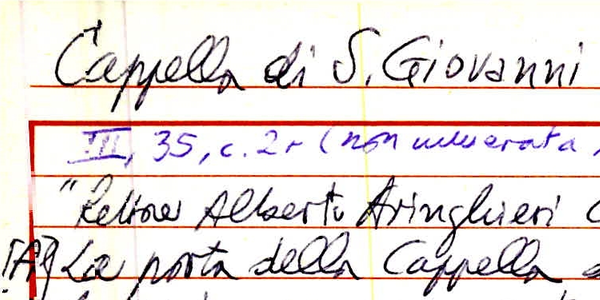 Cappella di S. Giovanni
III, 35, c. 2r (non numerata,
"Rettore Alberto Aringhieri
[A] La porta della Cappella